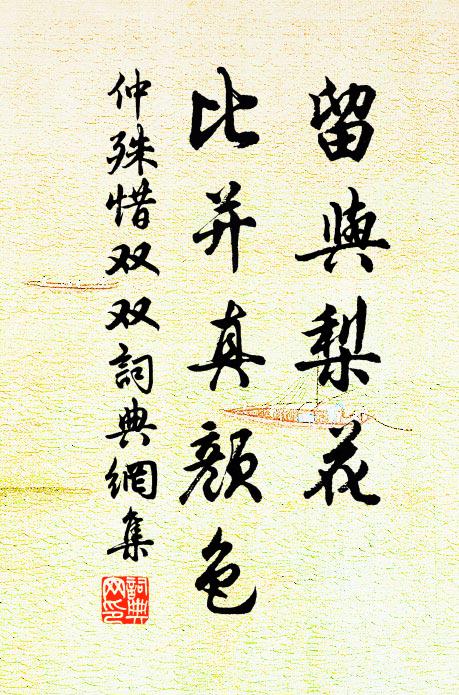 留與梨花
比并真顏色
仲殊惜双双詞典網集
詞典网印